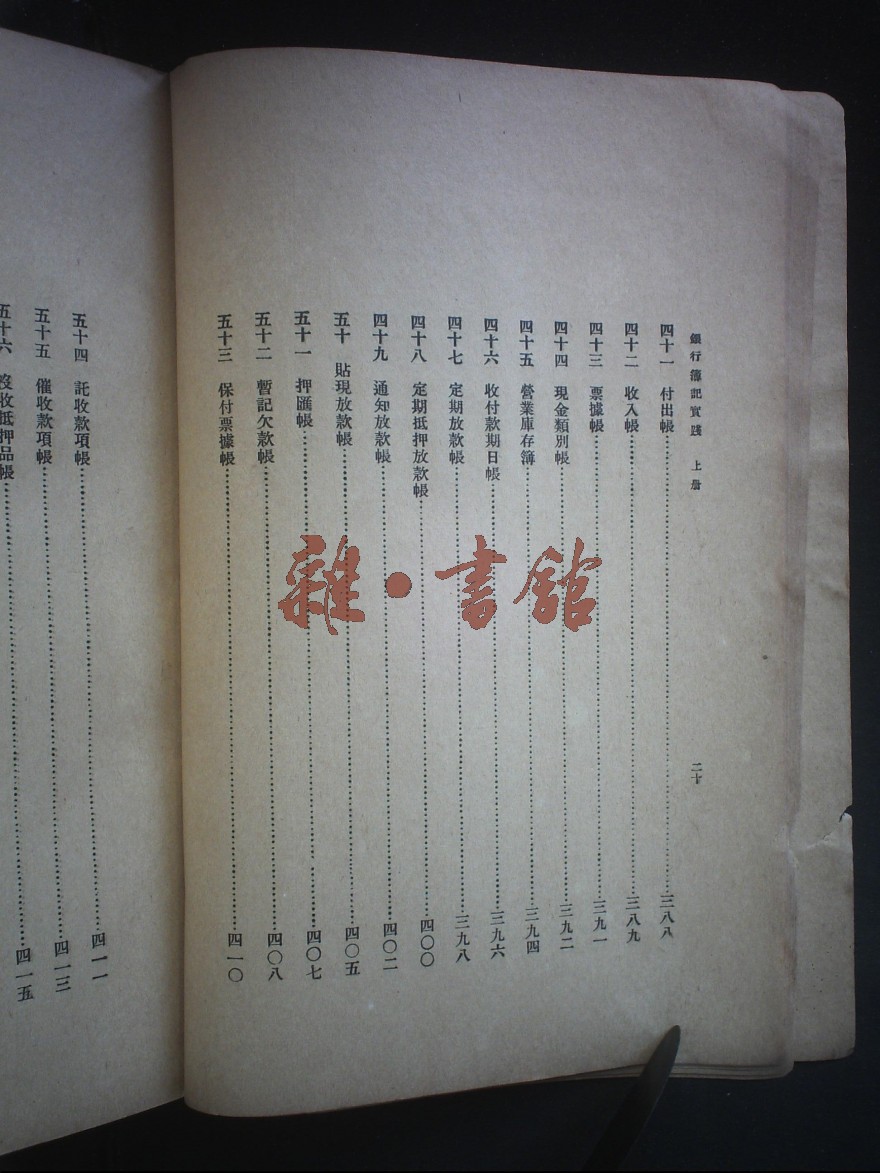 銀行簿記實踐　上册　二十
四十一　付出帳……三八八
四十二　收入帳……三八九
四十三　票據帳……三九一
四十四　現金類別帳……三九二
四十五　營業庫存簿……三九四
四十六　收付款期日帳……三九六
四十七　定期放款帳……三九八
四十八　定期抵押放款帳……四〇〇
四十九　通知放款帳……四〇二
五十　貼現放款帳……四〇五
五十一　押匯帳……四〇七
五十二　暫記欠款帳……四〇八
五十三　保付票據帳……四一〇
五十四　託收款項帳……四一一
五十五　催收款項帳……四一三
五十六　沒收抵押品帳……四一五
雜・書館